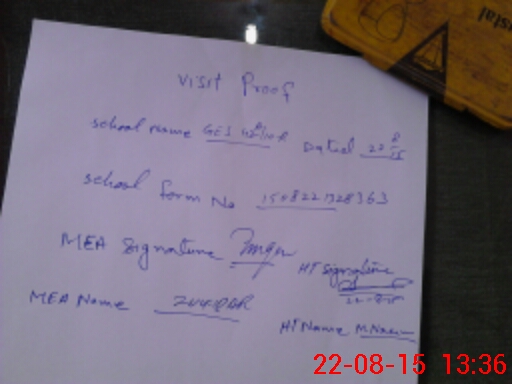 Visit Proof
School Name GES Dated 22 8/15
School form No 1508221328363
MEA Signature HT Signature
MEA Name ZULFIQAR
HT Name M. Naeem
22-08-15 13:36